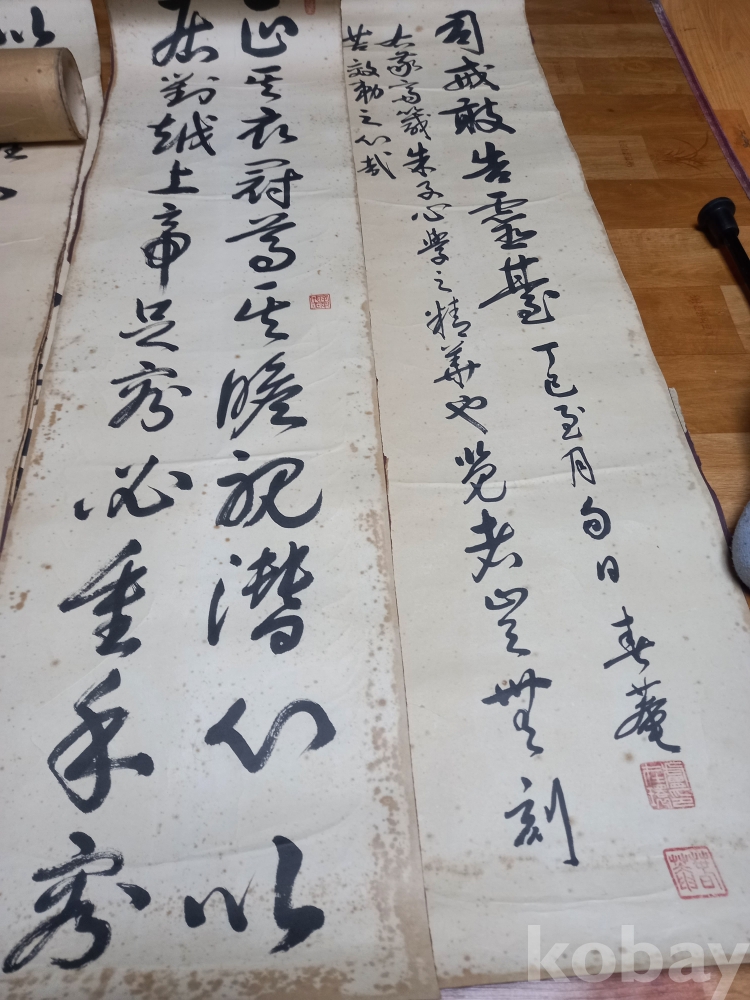 正其衣冠尊其瞻視潛心以
居對越上帝足容必重手容
司戒敢告靈臺
右敬齋箴朱子心學之精華也覽者豈無刻
苦效勤之心哉
丁巳至月旬日 春菴
以
kobay